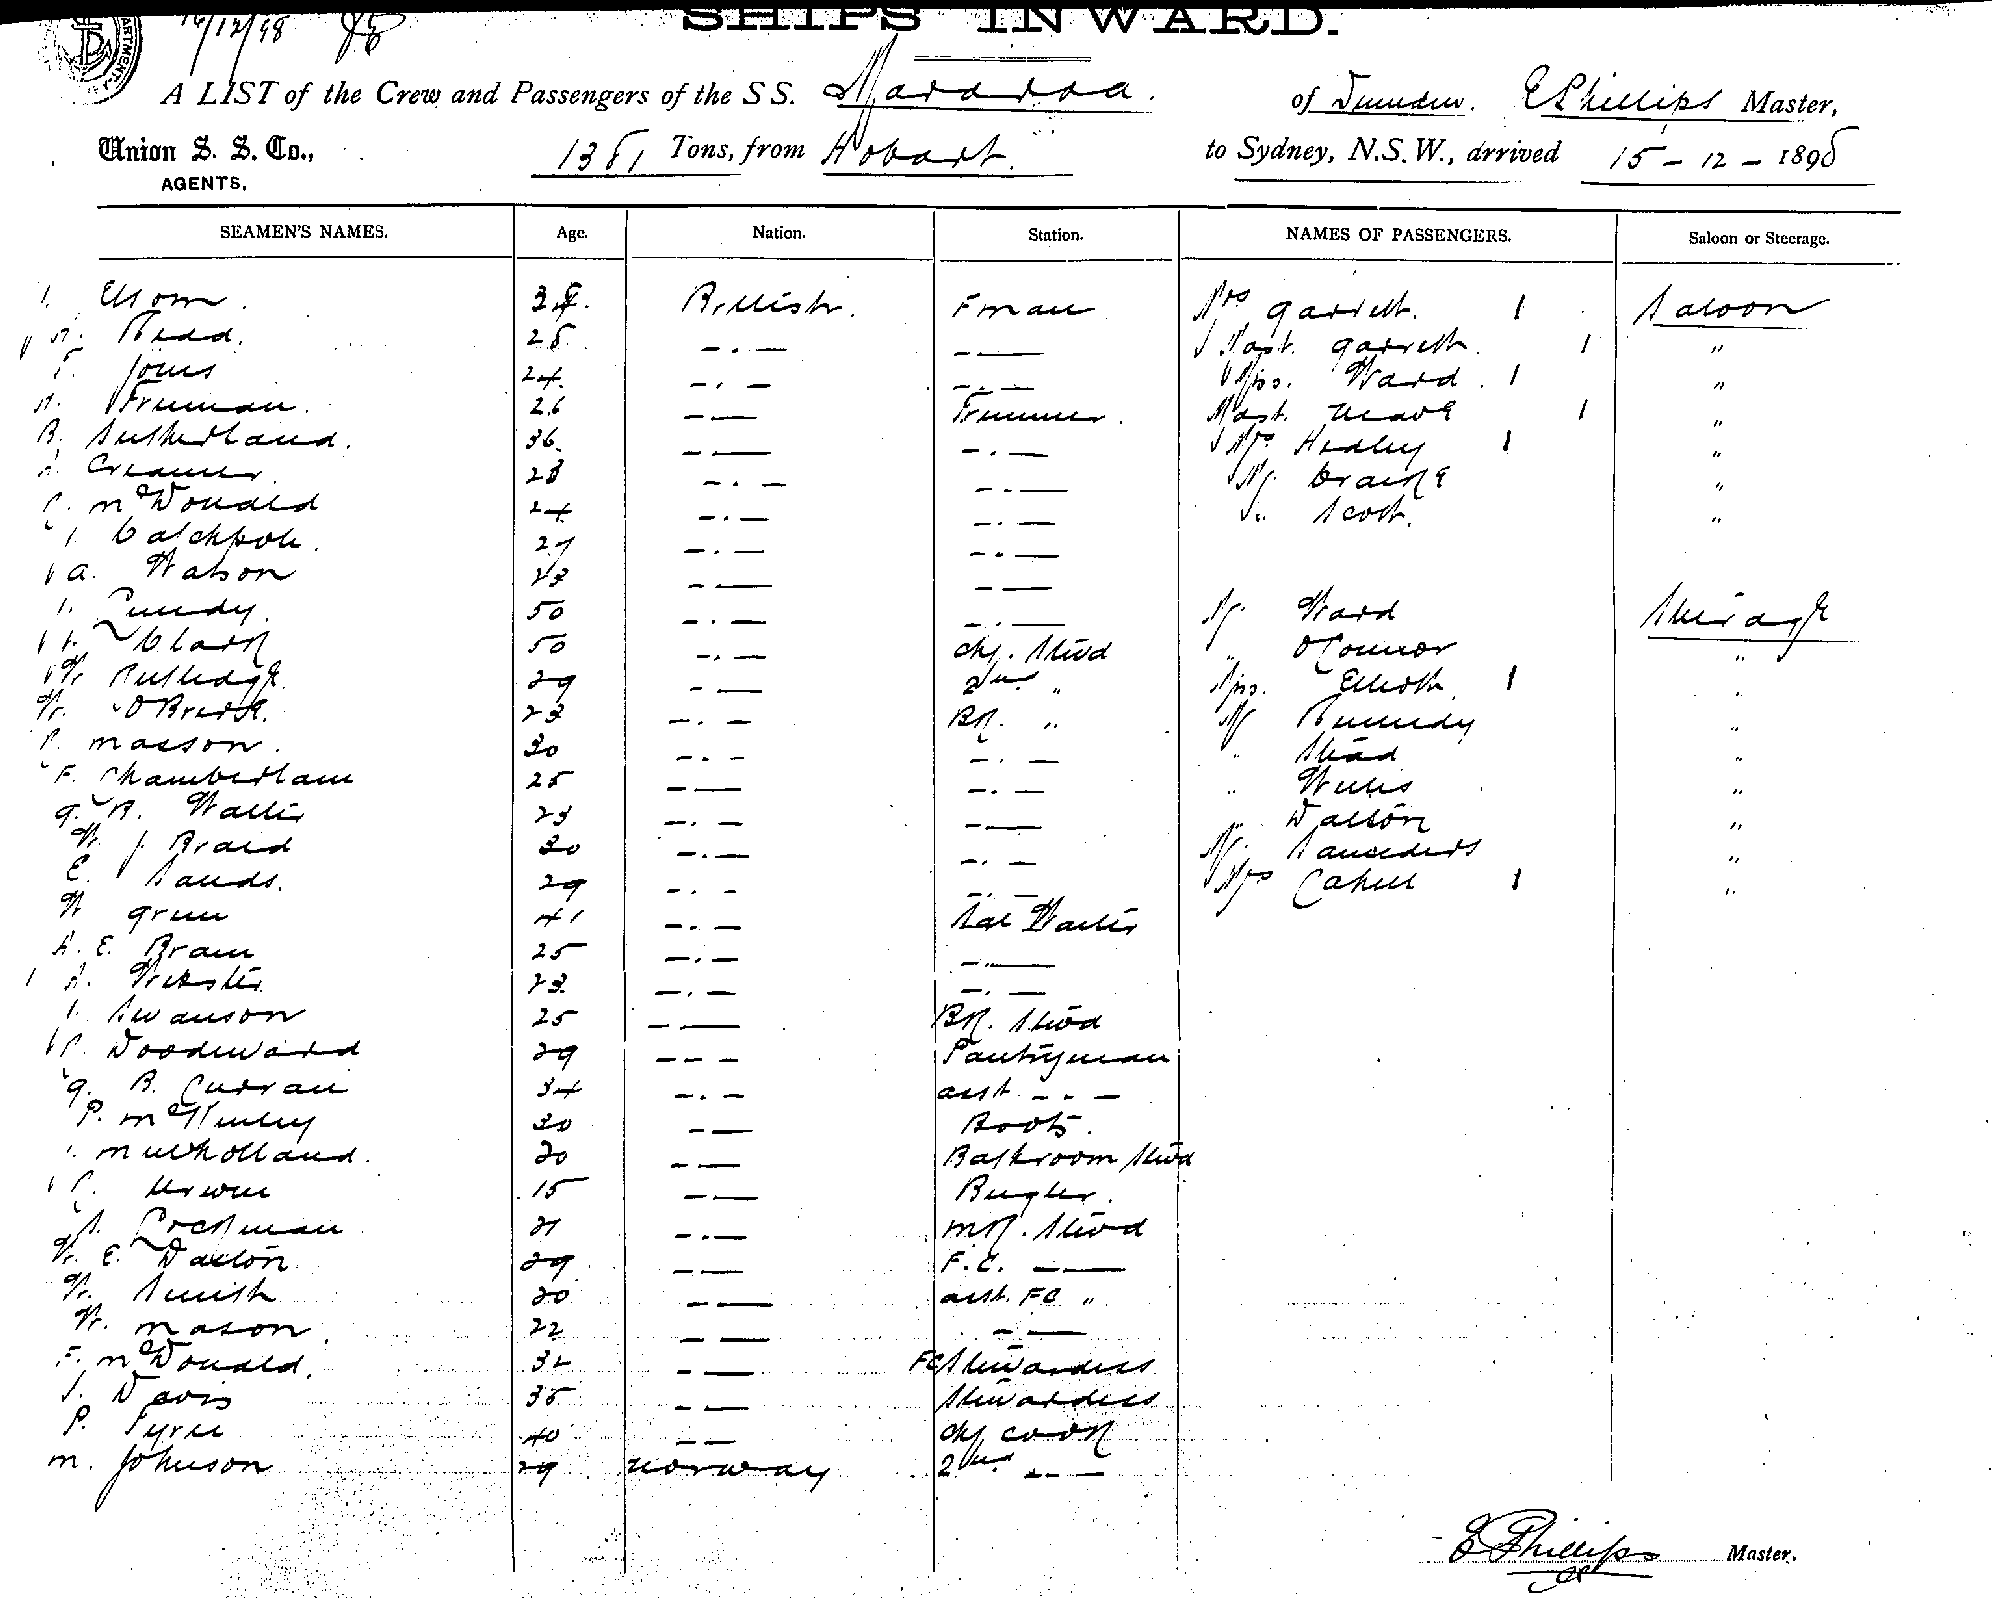 16/12/98
SHIPS INWARD.
A LIST of the Crew and Passengers of the SS. Mararoa. of Dunedin. E Phillips Master,
Union S. S. Co., 1381 Tons, from Hobart. to Sydney, N.S.W., arrived 15 - 12 - 1898
AGENTS.
SEAMEN'S NAMES. Age. Nation. Station. NAMES OF PASSENGERS. Saloon or Steerage.
British. Fman Mrs Garrett. 1 Saloon
25 —.— —— Mast. Garrett. 1 "
Jones 24 —.— —.— Miss. Ward. 1 "
Freeman. 26 —— Trimmer. Mast. 1 "
R. Sutherland. 36. —.— —.— Mrs Hedley 1 "
Creamer 28 —.— —.— Mr. "
C. McDonald 24 —.— —.— " Scott. "
J. Catchpole. 27 —.— —.—
A. Watson 23 —.— ——
J. Lundy. 50 —.— —.— Mr. Ward Steerage
Clark 50 —.— Chf. Stewd " O'Connor "
W. Rutledge. 29 —.— 2nd " Miss. Elliott 1 "
W. O'Brien. 23 —.— BR. " Mr Kennedy "
Masson. 30 —.— —.— " Stead "
F. Chamberlain 25 —— —.— " Willis "
G. R. Wallis 23 —.— —— " Dalton "
W. J. Braid 30 —.— —.— Mr. Saunders "
E. Sands. 29 —.— —.— Mrs Cahill 1 "
W Green 41 —.— Sal Waiter
A. E. Brain 25 —.— —.—
A. Webster 23 —.— —.—
J. Swanson 25 —— BR. Stewd
C. Woodward 29 — — — Pantryman
G. R. Curran 34 —.— asst —.—
P. McKinley 30 —— Boots.
J. Mulholland. 20 —— Bathroom Stewd
C. Urwin 15 —.— Bugler.
Lockman 21 —.— MR. Stewd
W. E. Dalton 29 —— F.C. ——
W. Smith 20 —— asst. FC "
W. Mason. 22 —— —.—
F. McDonald. 32 —— FC Stewardess
J. Davis 35 —— Stewardess
P. Tyree 40 —— Chf Cook
M. Johnson 29 Norway 2nd —.—
E Phillips Master.